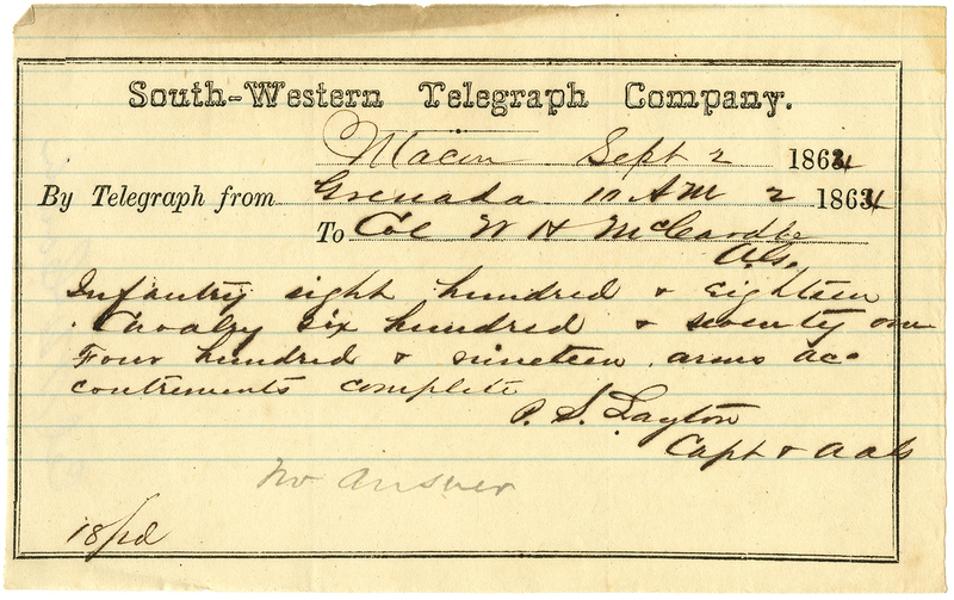 South-Western Telegraph Company.
Macon Sept 2 1864
By Telegraph from Grenada 10 AM 2 1864
To Col W H McCardle
AG.
Infantry eight hundred & eighteen
Cavalry six hundred & seventy one
Four hundred & nineteen arms ac-
coutrements complete
P. S. Layton
Capt & AAG
No Answer
18/